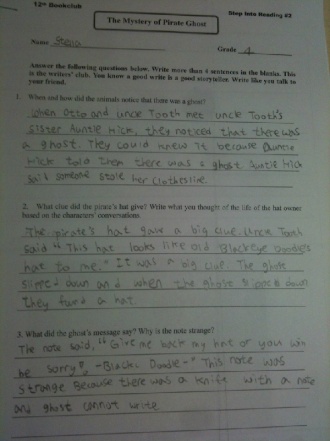 12th Bookclub
Step Into Reading #2
The Mystery of Pirate Ghost
Name Stella
Grade 4
Answer the following questions below. Write more than 4 sentences in the blanks. This
is the writers' club. You know a good write is a good storyteller. Write like you talk to
your friend.
1. When and how did the animals notice that there was a ghost?
When Otto and uncle Tooth met uncle Tooth's
sister Auntie Hick, they noticed that there was
a ghost. They could knew it because Auntie
Hick told them there was a ghost. Auntie Hick
said someone stole her clothesline.
2. What clue did the pirate's hat give? Write what you thought of the life of the hat owner
based on the characters' conversations.
The pirate's hat gave a big clue. Uncle Tooth
said "This hat looks like old Blackeye Doodle's
hat to me." It was a big clue. The ghost
slipped down and when the ghost down
they fund a hat.
3. What did the ghost's message say? Why is the note strange?
The note said, "Give me back my hat or you will
be sorry", -Black Doodle-" This note was
strange Because there was a knife with a note
and ghost cannot write